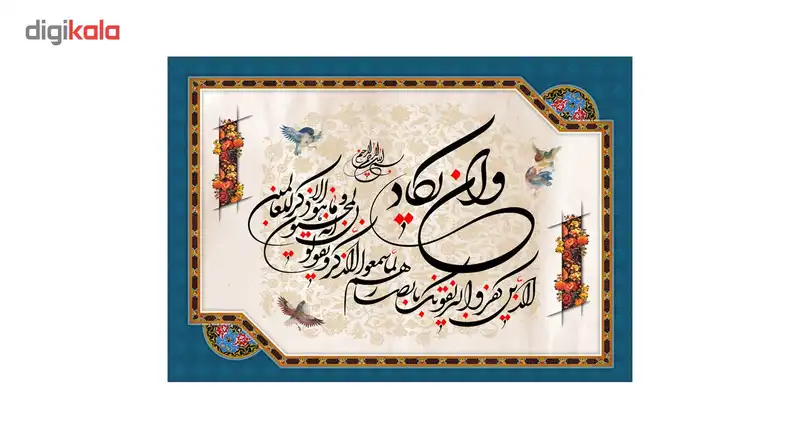 digikala
بسم الله الرحمن الرحیم
وان یکاد
الذین کفروا لیزلقونک بابصارهم
لما سمعوا الذکر و یقولون
انه لمجنون
و ما هو الا ذکر للعالمین